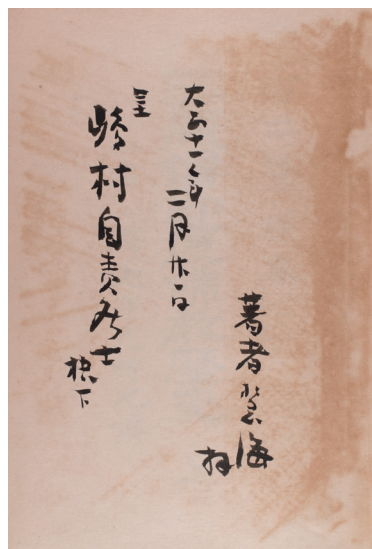 著者慧海
拝
大正十一年
二月廿一日
呈
村自責居士
下